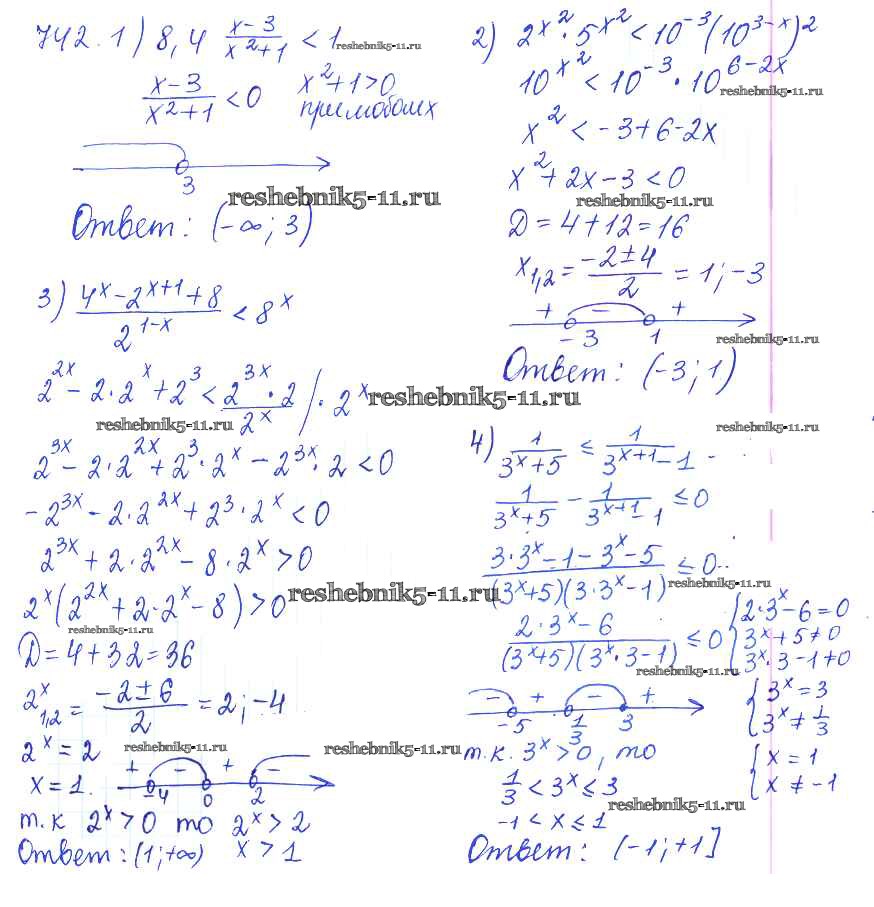 742. 1) 8,4 (x-3)/(x²+1) < 1 reshebnik5-11.ru
(x-3)/(x²+1) < 0 x²+1>0
при любых
3
reshebnik5-11.ru
Ответ: (-∞; 3)
2) 2^x² · 5^x² < 10^-3 (10^3-x)^2
10^x² < 10^-3 · 10^6-2x
reshebnik5-11.ru
x² < -3+6-2x
x²+2x-3 < 0
reshebnik5-11.ru
D = 4+12 = 16
x1,2 = (-2±4)/2 = 1; -3
+ - +
-3 1
reshebnik5-11.ru
Ответ: (-3; 1)
3) (4^x - 2^x+1 + 8)/(2^1-x) < 8^x
2^2x - 2·2^x + 2^3 < (2^3x · 2)/(2^x) / · 2^x
reshebnik5-11.ru
reshebnik5-11.ru
2^3x - 2·2^2x + 2^3·2^x - 2^3x·2 < 0
-2^3x - 2·2^2x + 2^3·2^x < 0
2^3x + 2·2^2x - 8·2^x > 0
2^x(2^2x + 2·2^x - 8) > 0
reshebnik5-11.ru
reshebnik5-11.ru
D = 4+32 = 36
2^x 1,2 = (-2±6)/2 = 2; -4
2^x = 2 reshebnik5-11.ru
reshebnik5-11.ru
x = 1. + - +
-4 0 2
т.к 2^x > 0 то 2^x > 2
Ответ: (1; +∞) x > 1
reshebnik5-11.ru
4) 1/(3^x+5) ≤ 1/(3^x+1 - 1)
1/(3^x+5) - 1/(3^x+1 - 1) ≤ 0
(3·3^x - 1 - 3^x - 5)/((3^x+5)(3·3^x-1)) ≤ 0
reshebnik5-11.ru
(2·3^x - 6)/((3^x+5)(3^x·3-1)) ≤ 0
reshebnik5-11.ru
{ 2·3^x - 6 = 0
3^x + 5 ≠ 0
3^x·3 - 1 ≠ 0
{ 3^x = 3
3^x ≠ 1/3
{ x = 1
x ≠ -1
- + - +
-5 1/3 3
т.к. 3^x > 0, то
1/3 < 3^x ≤ 3
reshebnik5-11.ru
-1 < x ≤ 1
Ответ: (-1; +1]